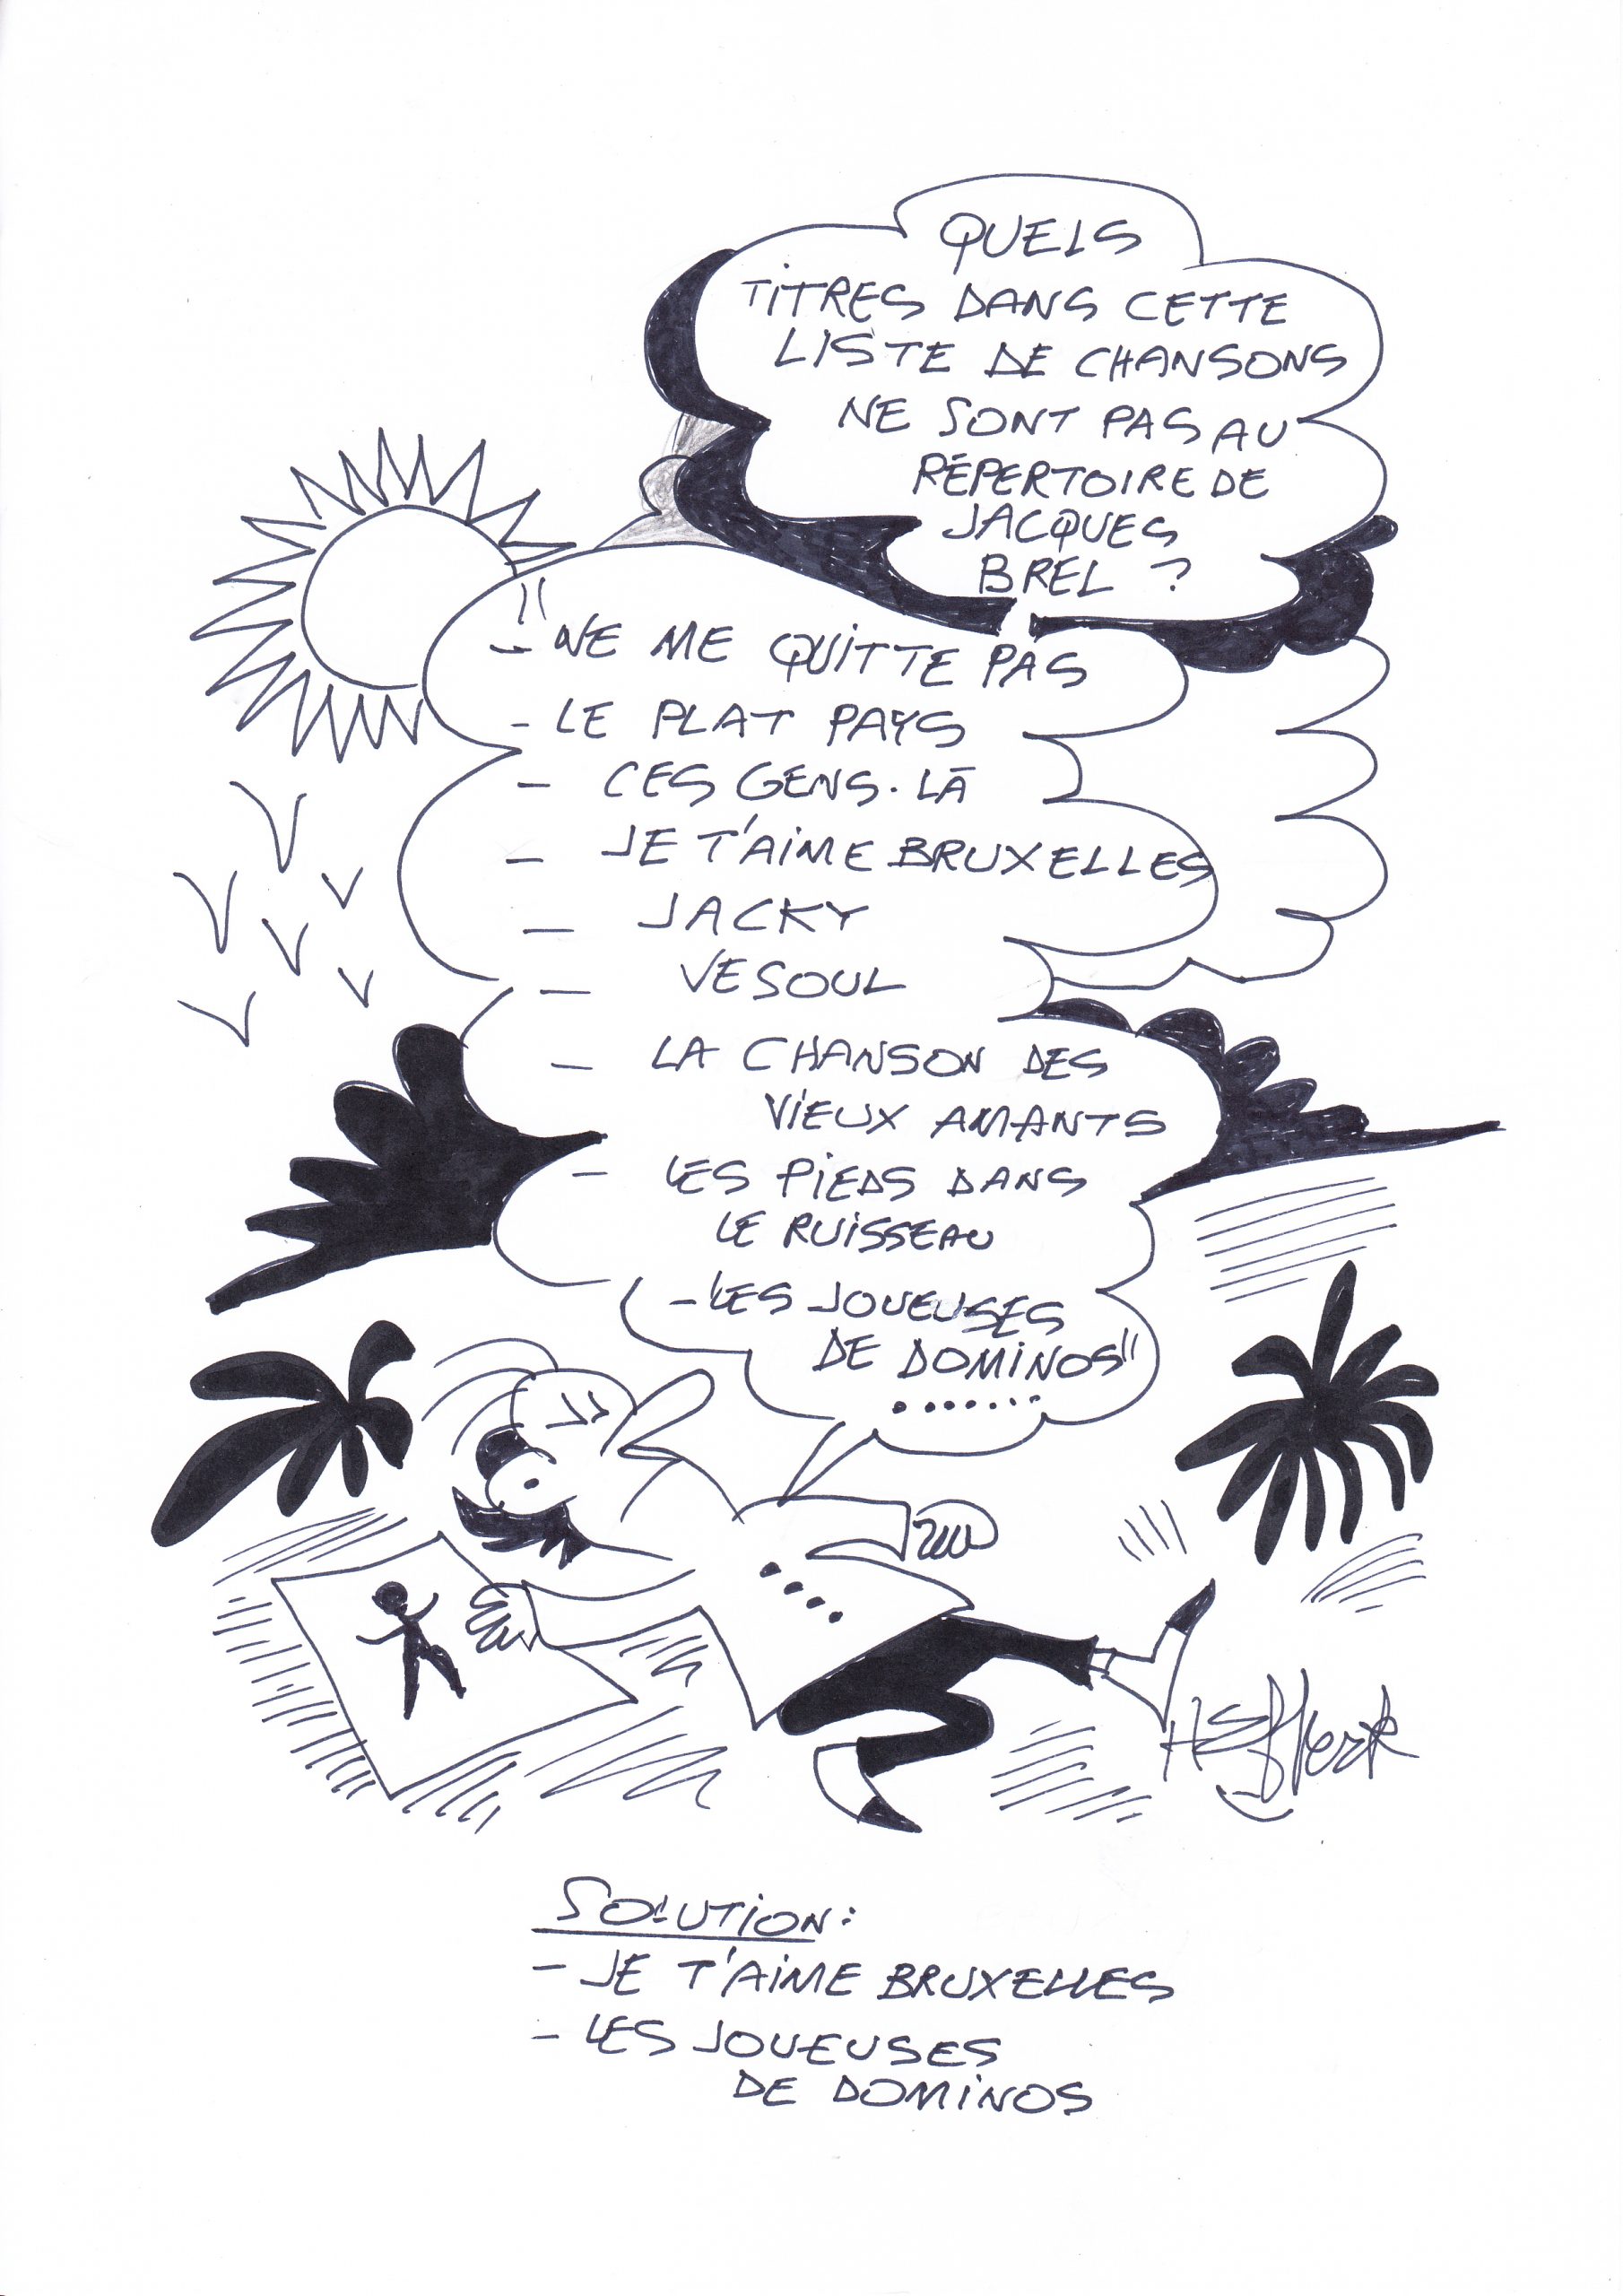 QUELS
TITRES DANS CETTE
LISTE DE CHANSONS
NE SONT PAS AU
RÉPERTOIRE DE
JACQUES
BREL ?
"
- NE ME QUITTE PAS
- LE PLAT PAYS
- CES GENS-LÀ
- JE T'AIME BRUXELLES
- JACKY
- VESOUL
- LA CHANSON DES
VIEUX AMANTS
- LES PIEDS DANS
LE RUISSEAU
- LES JOUEUSES
DE DOMINOS"
.......
SOLUTION:
- JE T'AIME BRUXELLES
- LES JOUEUSES
DE DOMINOS